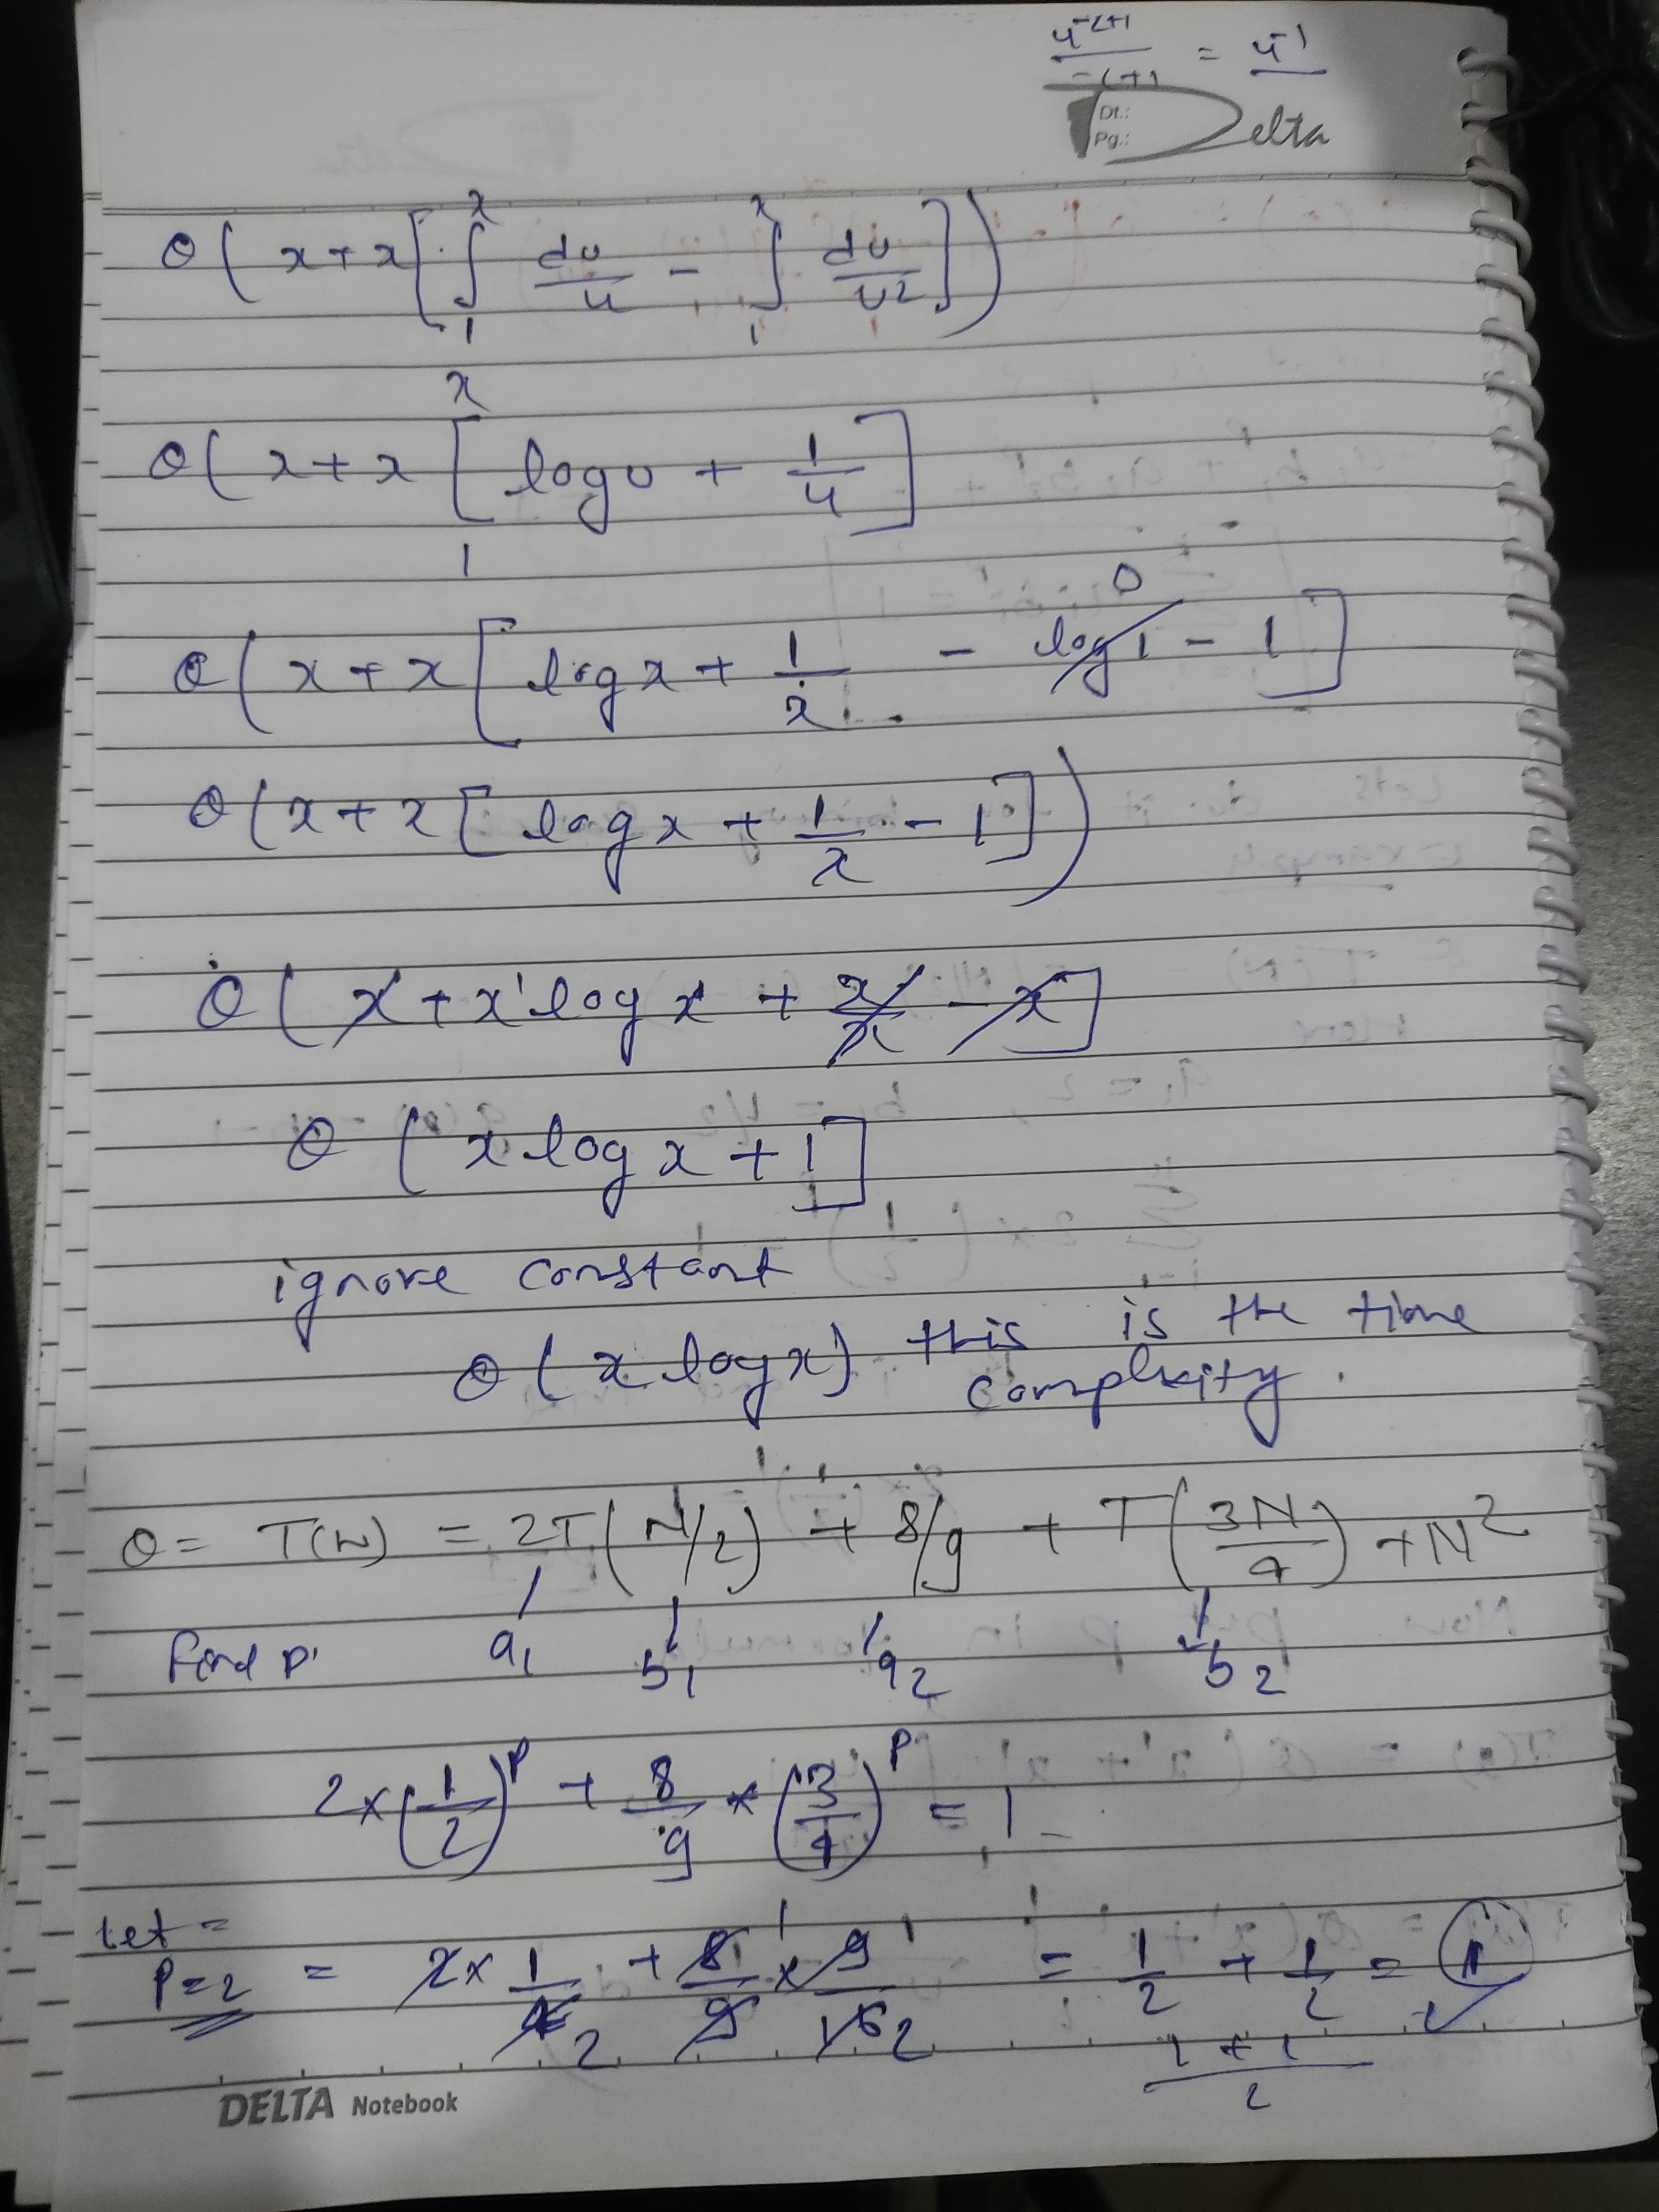 u⁻²⁺¹/-2+1 = u⁻¹
Dt.:
Pg.:
Delta
θ( x+x[∫₁ˣ du/u - ∫₁ˣ du/u²])
θ( x+x [ log u + 1/u ]₁ˣ
θ( x+x[ log x + 1/x - log 1 - 1 ]
0
θ(x+x[ log x + 1/x - 1])
θ( x+x¹ log x + x/x - x]
θ [ x log x + 1 ]
ignore constant
θ ( x log x) this is the time
complxity.
Q= T(N) = 2T(N/2) + 8/9 + T(3N/4) + N²
Find P' a₁ b₁ a₂ b₂
2×(1/2)ᵖ + 8/9 * (3/4)ᵖ = 1
let =
P=2 = 2× 1/4 2 + 8/9 × 9/16 2 = 1/2 + 1/2 = 1
1+1/2
DELTA Notebook